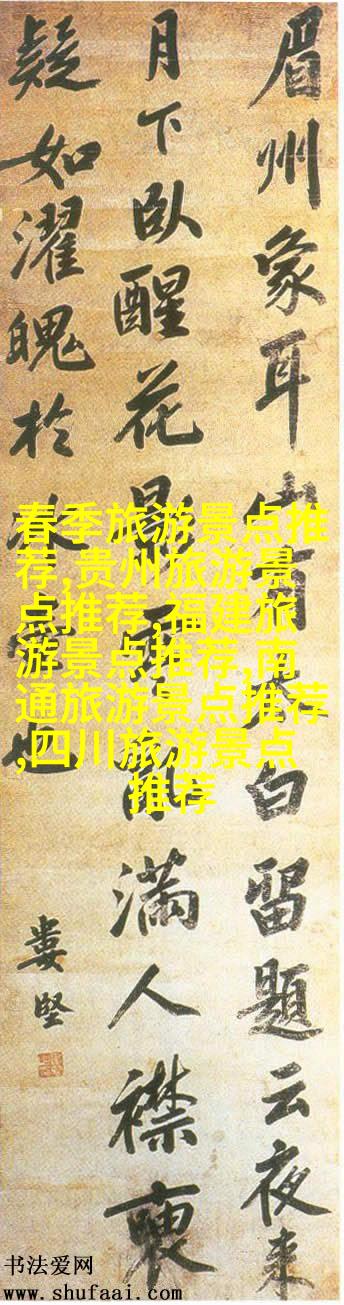 眉州象耳山有太白留題云夜来
月下臥醒花影零亂滿人襟
疑如濯魄於冰壺也
婁堅
春季旅游景点推
荐,贵州旅游景
点推荐,福建旅
游景点推荐,南
通旅游景点推荐
,四川旅游景点
推荐
书法爱网
www.shufaai.com